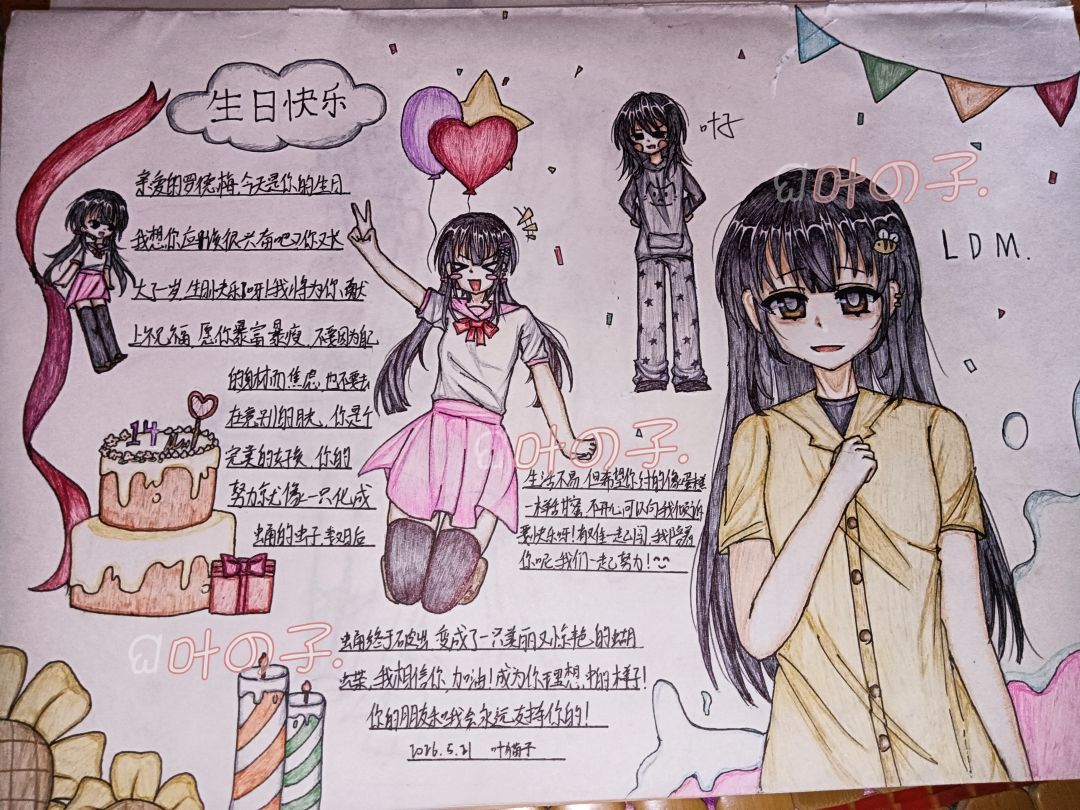 生日快乐
亲爱的罗德梅,今天是你的生日
我想你应时候很兴奋吧又你又长
大了一岁,生日快乐!呀!上我将为你献
上祝福,愿你暴富暴瘦,不要因为自己
的身材而焦虑,也不要去
在意别人的目光,你是个
完美的女孩,你的
努力就像一只化成
蛹的虫子,数月后
蛹终于破出,变成了一只美丽又惊艳的蝴
蝶,我相信你,加油!成为你理想中的样子!
你的朋友和我会永远支持你的!
2026.5.21 叶猫子
生活不易,但希望你过的像蛋糕
一样甜蜜,不开心可以向我倾诉
要快乐呀!有难一起闯,我陪着
你呢,我们一起努力!
叶子
LDM.
14
叶の子.
叶の子.
叶の子.